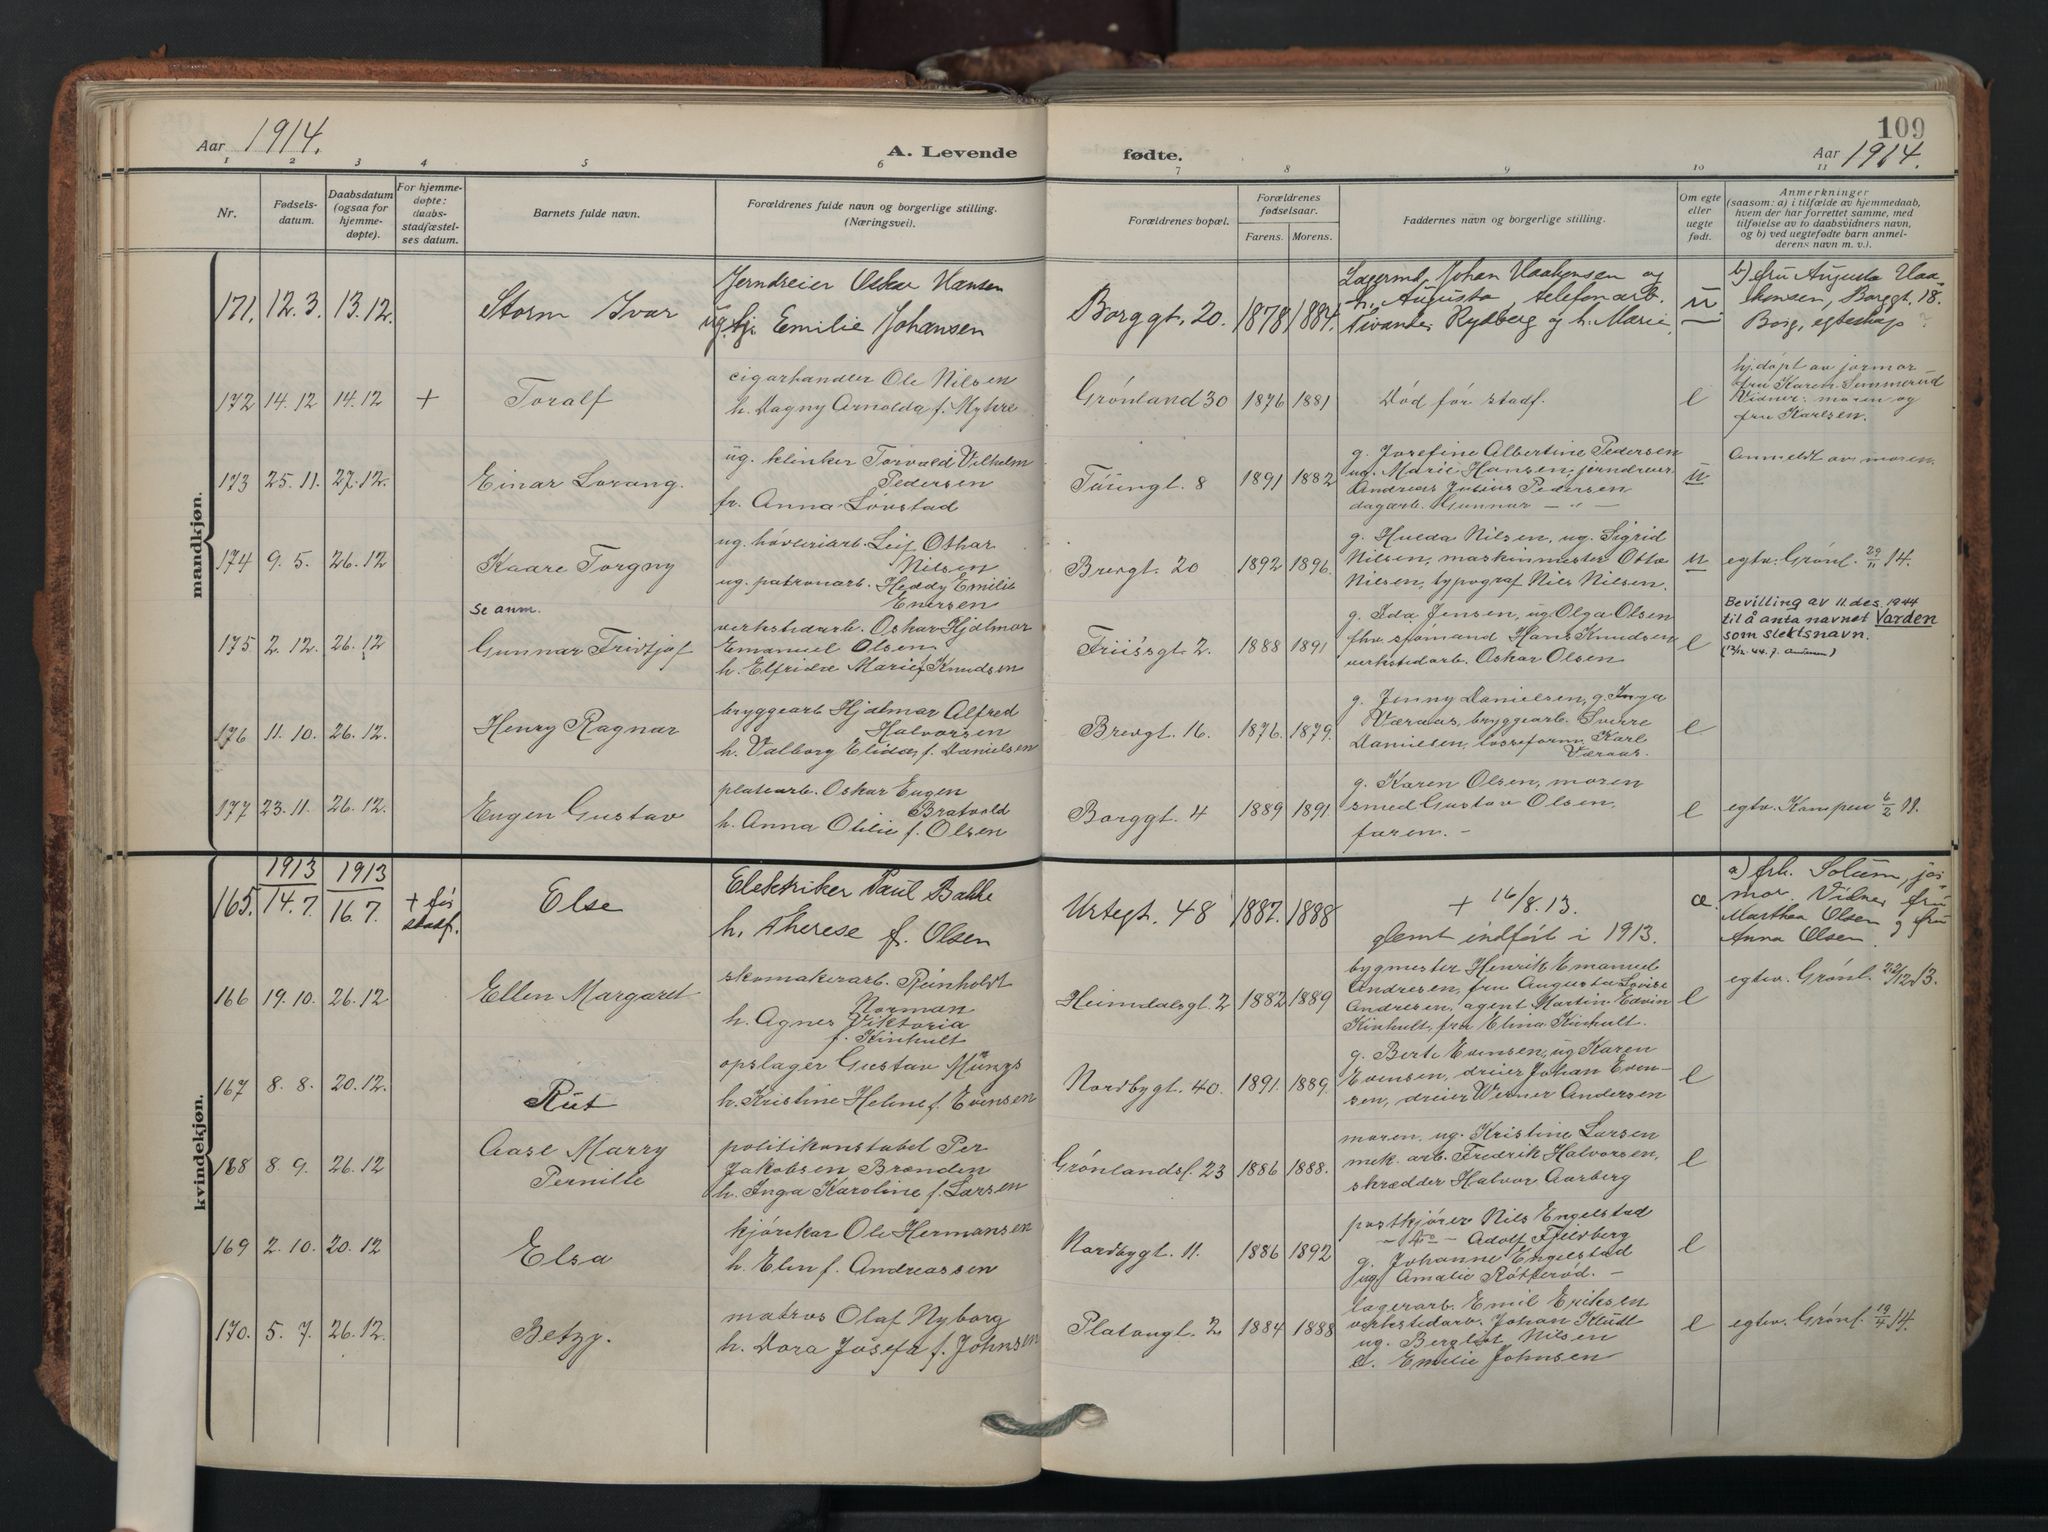 109
Aar 1914.
A. Levende
fødte.
Aar 1914.
1 2 3 4 5 6 7 8 9 10 11
Nr.
Fødsels-
datum.
Daabsdatum
(ogsaa for
hjemme-
døpte).
For hjemme-
døpte:
daabs-
stadfæstel-
ses datum.
Barnets fulde navn.
Forældrenes fulde navn og borgerlige stilling.
(Næringsvei).
Forældrenes bopæl.
Forældrenes
fødselsaar.
Farens. Morens.
Faddernes navn og borgerlige stilling.
Om egte
eller
uegte
født.
Anmerkninger
(saasom: a) i tilfælde av hjemmedaab,
hvem der har forrettet samme, med
tilføielse av to daabsvidners navn,
og b) ved uegtefødte barn anmel-
derens navn m. v.).
mandkjøn.
171. 12.3. 13.12. Storm Ivar
Jerndreier Oskar Hansen
ug. tj. Emilie Johansen
Borggt. 20. 1878 1884.
Lagermd. Johan Haakensen og
h. Augusta, telefonarb.
Rydberg og h. Marie,
u
b) fru Augusta Haa-
kensen, Borggt. 18.
Borg. egteskap ?
172 14.12 14.12 + Toralf
cigarhandler Ole Nilsen
h. Dagny Arnolda f. Myhre
Grønland 30 1876 1881
Død før stadf.
e
hj.døpt av jormor
fru Karen
Vidner: moren og
fru Karlsen.
173 25.11. 27.12. Einar Lorang.
ug. klinker Torvald Vilhelm
Pedersen
fr. Anna Lövstad
Turingt. 8 1891 1882
g. Josefine Albertine Pedersen
ug. Marie Hansen, jerndreier
Andreas Julius Pedersen
dagarb. Gunnar — " —
u
Anmeldt av moren.
174 9.5. 26.12 Kaare Torgny
ug. høvleriarb. Leif Othar
Nilsen
ug. patronarb. Heddy Emilie
Enersen
Brevgt. 20 1892 1896.
g. Hulda Nilsen, ug. Sigrid
Nilsen, maskinmester Otto
Nilsen, typograf Nils Nilsen.
u
egtv. Grønl. 29/11 14.
se anm.
175 2.12. 26.12 Gunnar Fridtjof
verkstedarb. Oskar Hjalmar
Emanuel Olsen
h. Elfrida Marie f. Knudsen
Friisgt. 2. 1888 1891
g. Ida Jensen, ug Olga Olsen
fhv. sjømand Hans Knudsen
verkstedarb. Oskar Olsen
e
Bevilling av 11. des. 1944
til å anta navnet Varden
som slektsnavn.
176 11.10. 26.12. Henry Ragnar
bryggearb Hjalmar Alfred
Halvorsen
h. Valborg Elida f. Danielsen
Brevgt. 16. 1876. 1879.
g. Jenny Danielsen, g. Inga
Væraas, bryggearb. Sverre
Danielsen, losseform. Karl
Væraas.
e
177 23.11. 26.12. Eugen Gustav
platearb. Oskar Eugen
Bratvold
h. Anna Otilie f. Olsen
Borggt. 4 1889 1891.
g. Karen Olsen, moren
smed Gustav Olsen,
faren. –
e
egtv. Kampen 6/2 11.
kvindekjøn.
1913 1913
165. 14.7. 16.7. + før
stadf.
Else
Elektriker Paul Bakke
h. Therese f. Olsen
Urtegt. 48 1887. 1888
+ 16/8.13.
glemt indført i 1913.
æ.
a) frk. Solum, jor-
mor. Vidner fru
Marthea Olsen og fru
Anna Olsen.
166 19.10. 26.12 Ellen Margaret
skomakerarb. Reinholdt
Norman
h. Agnes Viktoria
f. Kinhult
Heimdalsgt. 2 1882 1889
bygmester Henrik Emanuel
Andresen, fru Augusta Lovise
Andresen, agent Martin Edvin
Kinhult, fru Elina Kinhult.
e
egtv. Grønl. 22/12 13.
167 8.8. 20.12. Rut
opslager Gustav Müngs
h. Kristine Helene f. Evensen
Nordbygt. 40. 1891. 1889.
g. Berte Evensen, ug Karen
Evensen, dreier Johan Even-
sen, dreier Werner Andersen
e
168 8.9. 26.12 Aase Marry
Pernille
politikonstabel Per
Jakobsen Brænden
h. Inga Karoline f. Larsen
Grønlands. 23 1886 1888.
moren, ug. Kristine Larsen
mek. arb. Fredrik Halvorsen,
skrædder Halvor Aarberg
e
169 2.10. 20.12 Elsa
kjørekar Ole Hermansen
h. Elen f. Andreassen
Nordbygt. 11. 1886 1892
postkjører Nils Engelstad
— do — Adolf Fjeldberg
g. Johanne Engelstad
ug. Amalie Røtterød. –
e
170. 5.7. 26.12. Betzy.
matros Olaf Nyborg
h. Dora Josefa f. Johnsen
Platougt. 2 1884 1888
lagerarb. Emil Eriksen
verkstedarb. Johan Kludt
ug. Bergliot Nilsen
e. Emilie Johnsen
e
egtv. Grønl. 19/4 14.